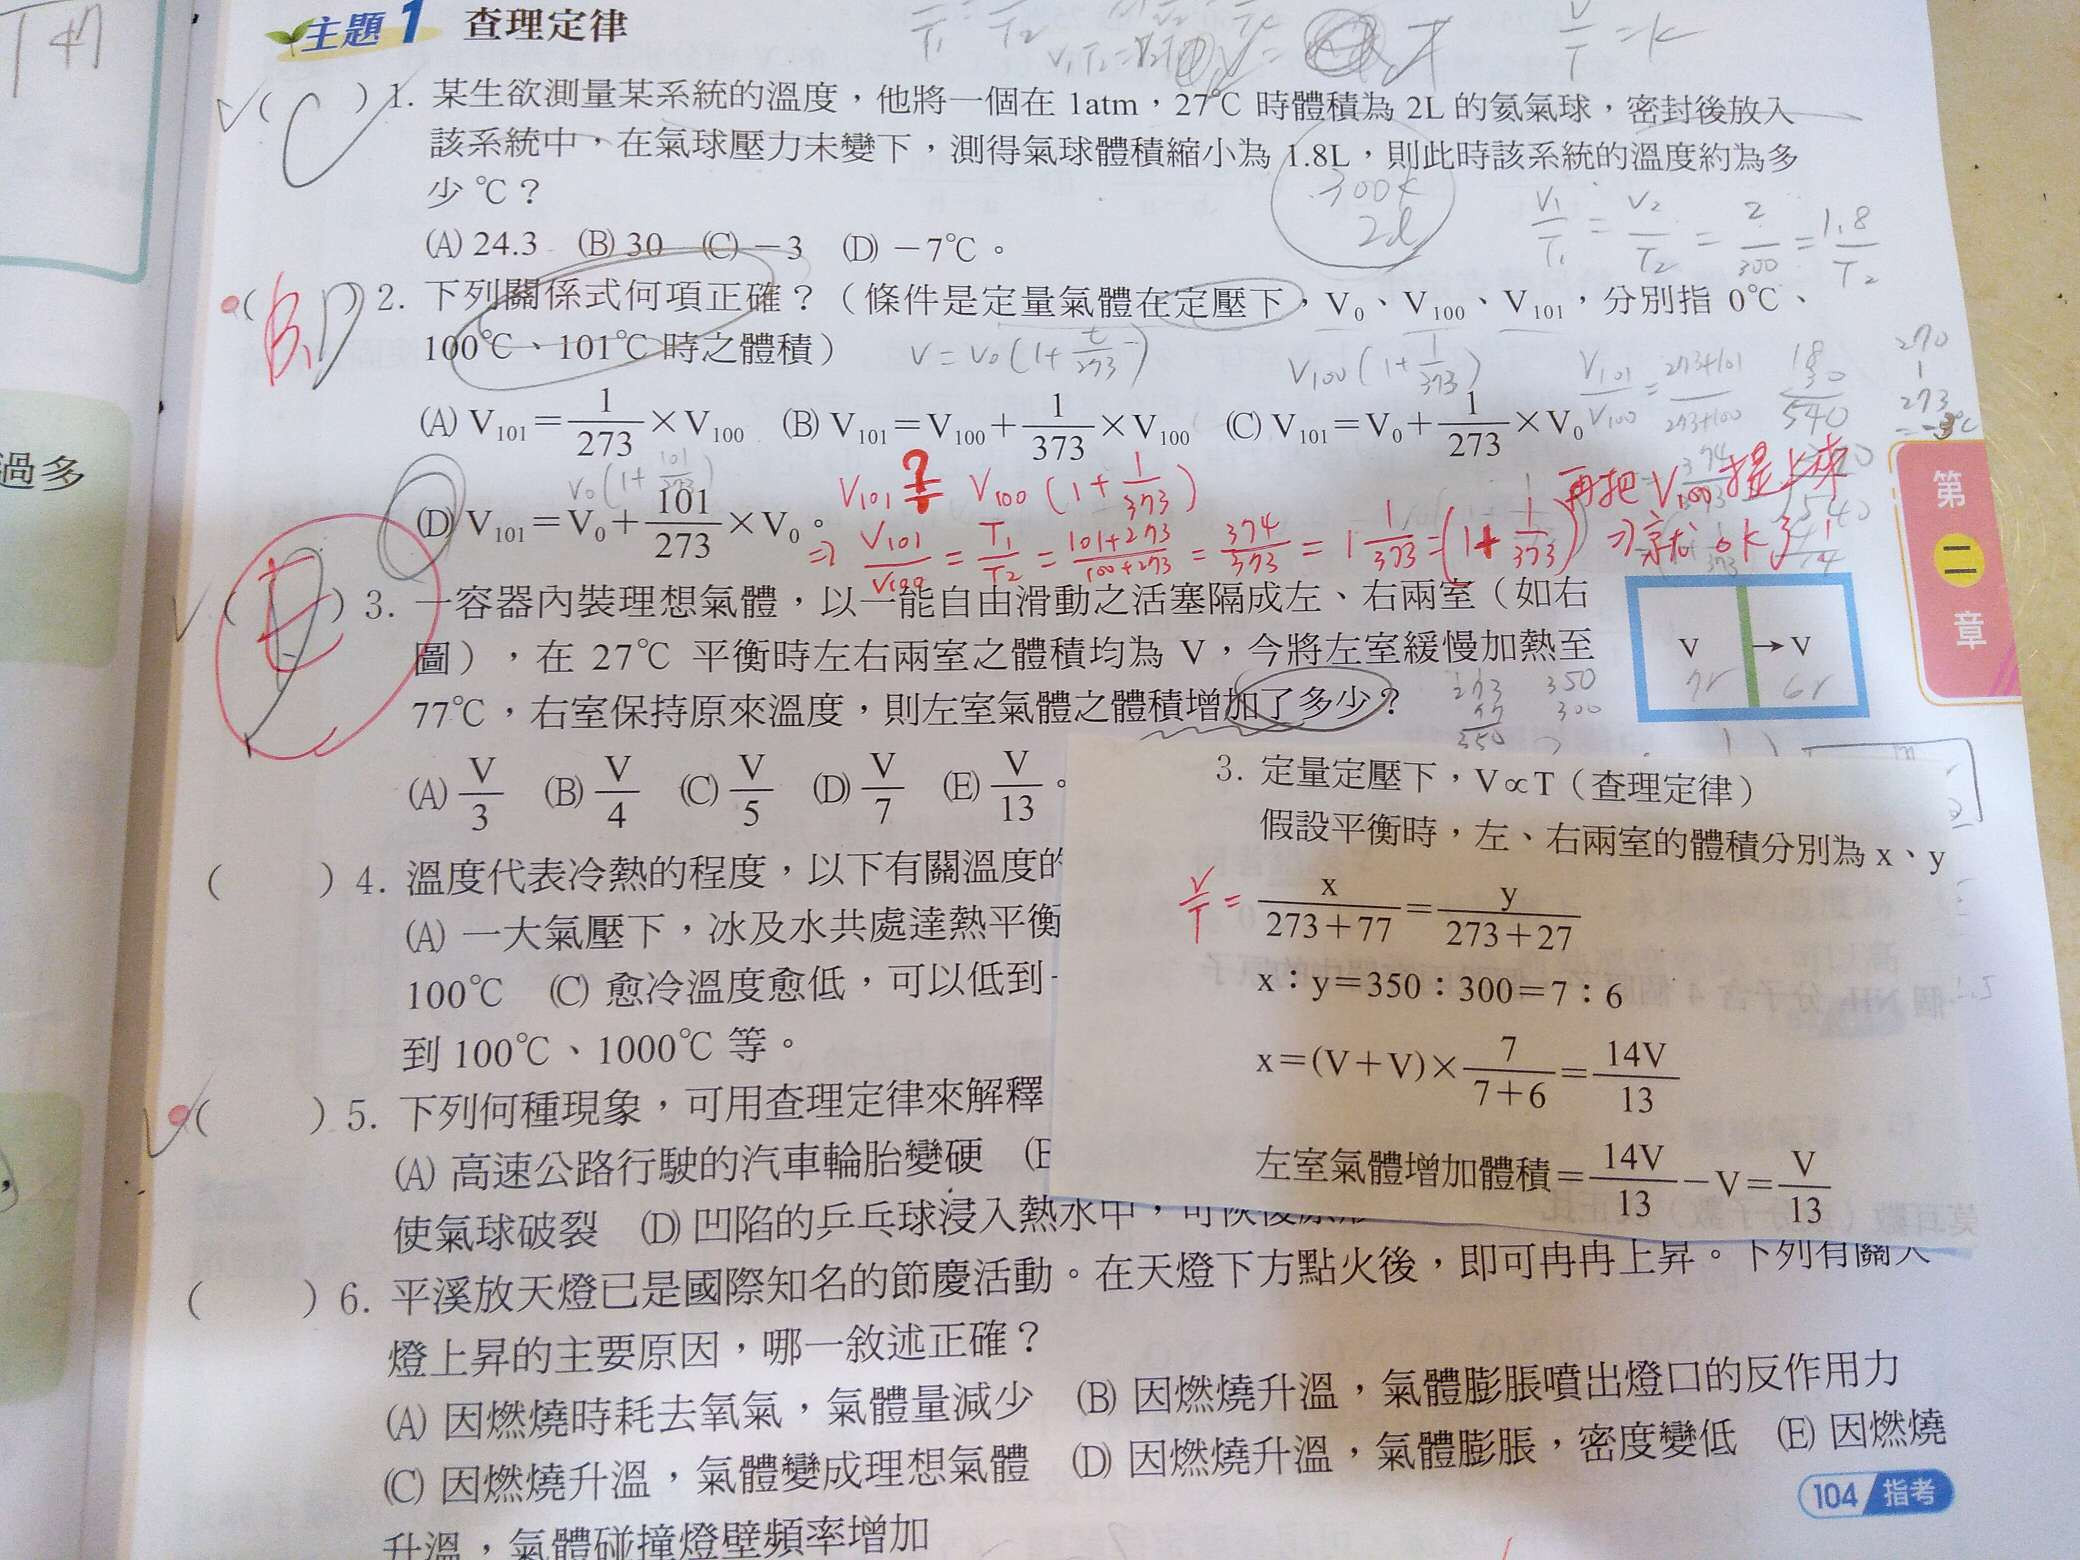 主題1 查理定律
V/T = k
( C ) 1. 某生欲測量某系統的溫度，他將一個在 1atm，27℃ 時體積為 2L 的氦氣球，密封後放入
該系統中，在氣球壓力未變下，測得氣球體積縮小為 1.8L，則此時該系統的溫度約為多
少 ℃？
300k
2l
V₁/T₁ = V₂/T₂ = 2/300 = 1.8/T₂
(A) 24.3 (B) 30 (C) －3 (D) －7℃。
( B,D ) 2. 下列關係式何項正確？（條件是定量氣體在定壓下，V₀、V₁₀₀、V₁₀₁，分別指 0℃、
100℃、101℃ 時之體積）
V = V₀(1+t/273)
V₁₀₀(1+1/373)
V₁₀₁/V₁₀₀ = 273+101/273+100
(A) V₁₀₁＝1/273×V₁₀₀ (B) V₁₀₁＝V₁₀₀＋1/373×V₁₀₀ (C) V₁₀₁＝V₀＋1/273×V₀
(D) V₁₀₁＝V₀＋101/273×V₀。
V₁₀₁ ?= V₁₀₀(1+1/373)
⇒ V₁₀₁/V₁₀₀ = T₁/T₂ = 101+273/100+273 = 374/373 = 1 1/373 = (1+1/373) 再把 V₁₀₀ 提上來
⇒就 ok了
第二章
( E ) 3. 一容器內裝理想氣體，以一能自由滑動之活塞隔成左、右兩室（如右
圖），在 27℃ 平衡時左右兩室之體積均為 V，今將左室緩慢加熱至
77℃，右室保持原來溫度，則左室氣體之體積增加了多少？
V → V
7r 6r
273 350
77 300
350
(A) V/3 (B) V/4 (C) V/5 (D) V/7 (E) V/13。
3. 定量定壓下，V∝T（查理定律）
假設平衡時，左、右兩室的體積分別為 x、y
V/T = x/273＋77＝y/273＋27
x：y＝350：300＝7：6
x＝(V＋V)×7/7＋6＝14V/13
左室氣體增加體積＝14V/13－V＝V/13
( ) 4. 溫度代表冷熱的程度，以下有關溫度的
(A) 一大氣壓下，冰及水共處達熱平衡
100℃ (C) 愈冷溫度愈低，可以低到
到 100℃、1000℃ 等。
( ) 5. 下列何種現象，可用查理定律來解釋
(A) 高速公路行駛的汽車輪胎變硬
使氣球破裂 (D) 凹陷的乒乓球浸入熱水中，可恢復原形
( ) 6. 平溪放天燈已是國際知名的節慶活動。在天燈下方點火後，即可冉冉上昇。下列有關天
燈上昇的主要原因，哪一敘述正確？
(A) 因燃燒時耗去氧氣，氣體量減少 (B) 因燃燒升溫，氣體膨脹噴出燈口的反作用力
(C) 因燃燒升溫，氣體變成理想氣體 (D) 因燃燒升溫，氣體膨脹，密度變低 (E) 因燃燒
升溫，氣體碰撞燈壁頻率增加
104 指考
過多